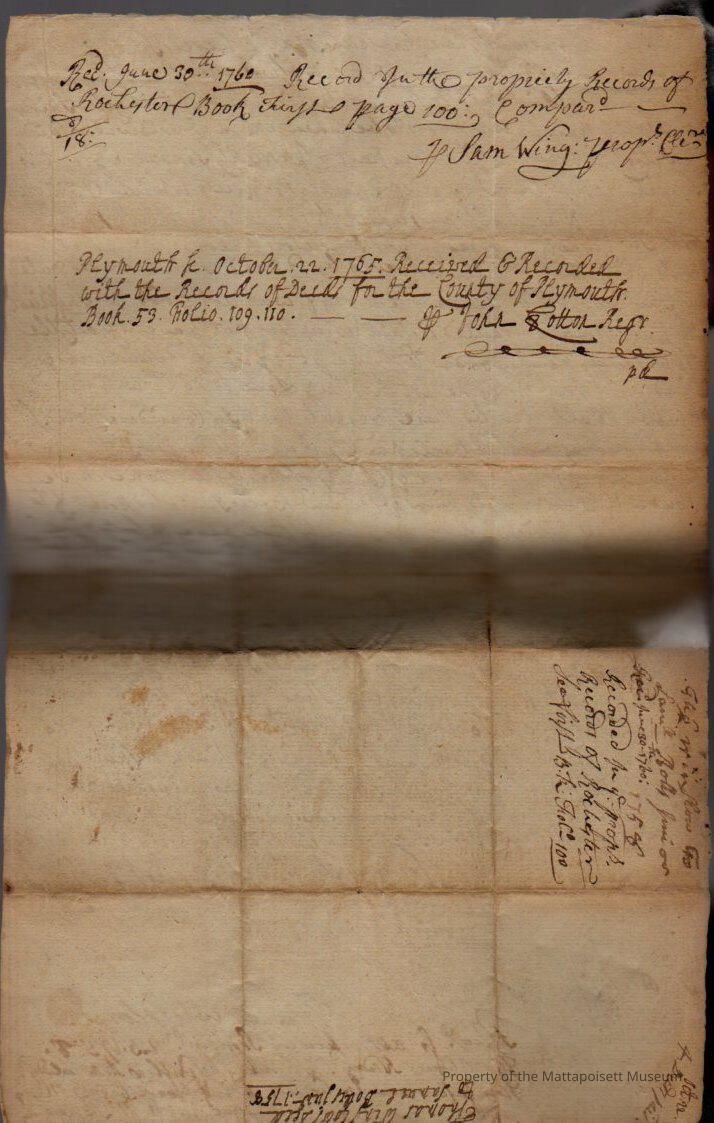 Recd. June 30th 1760 Record In the propriety Records of
Rochester Book first page 100: Compard
18:
Sam Wing: propr. Cler
Plymouth ss. October. 22. 1765. Received & Recorded
with the Records of Deeds for the County of Plymouth.
Book. 53. Folio. 109. 110. John Cotton Regr.
Junior
1758
Recd. June 30th 1760.
Recorded in ye props.
Records of Rochester
first Bk: Fol. 100
Property of the Mattapoisett Museum
Thomas Winslows Deed
to Samuel 1758